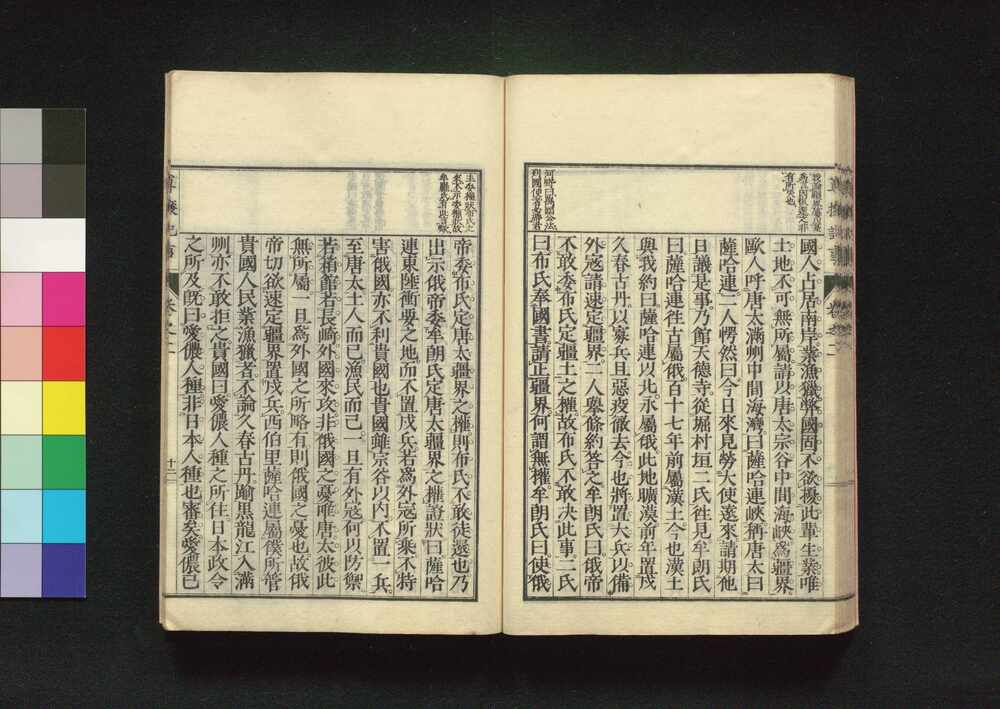 國人占居南岸業漁獵弊國固不欲擾此輩生業唯
土地不可無所屬請以唐太宗谷中間海峽爲疆界
歐人呼唐太滿州中間海灣曰薩哈連峽稱唐太曰
薩哈連二人愕然曰今日來見勞大使遠來請期他
日議是事乃館天德寺從堀村垣二氏往見牟朗氏
曰薩哈連往古屬俄百十七年前屬漢土今也漢土
與我約曰薩哈連以北永屬俄此地曠漠前年置戍
久春古丹以寡兵且惡疫徹去今也將置大兵以備
外寇請速定疆界二人擧條約答之牟朗氏曰俄帝
不敢委布氏定疆土之權故布氏不敢決此事二氏
曰布氏奉國書請正疆界何謂無權牟朗氏曰使俄
帝委布氏定唐太疆界之權則布氏不敢徒還也乃
出示俄帝委牟朗氏定唐太疆界之權證狀曰薩哈
連東陲衝要之地而不置戍兵若爲外寇所乘不特
害俄國亦不利貴國也貴國雖宗谷以内不置一兵
至唐太土人而已漁民而已一旦有外寇何以防禦
若箱館若長崎外國來攻非俄國之憂唯唐太彼此
無所屬一旦爲外國之所略有則俄國之憂也故俄
帝切欲速定疆界置戍兵西伯里薩哈連屬僕所管
貴國人民業漁獵者不論久春古丹踰黑龍江入滿
州亦不敢拒之貴國曰愛儂人種之所住日本政令
之所及既曰愛儂人種非日本人種也審矣愛儂已
卷之二
十二